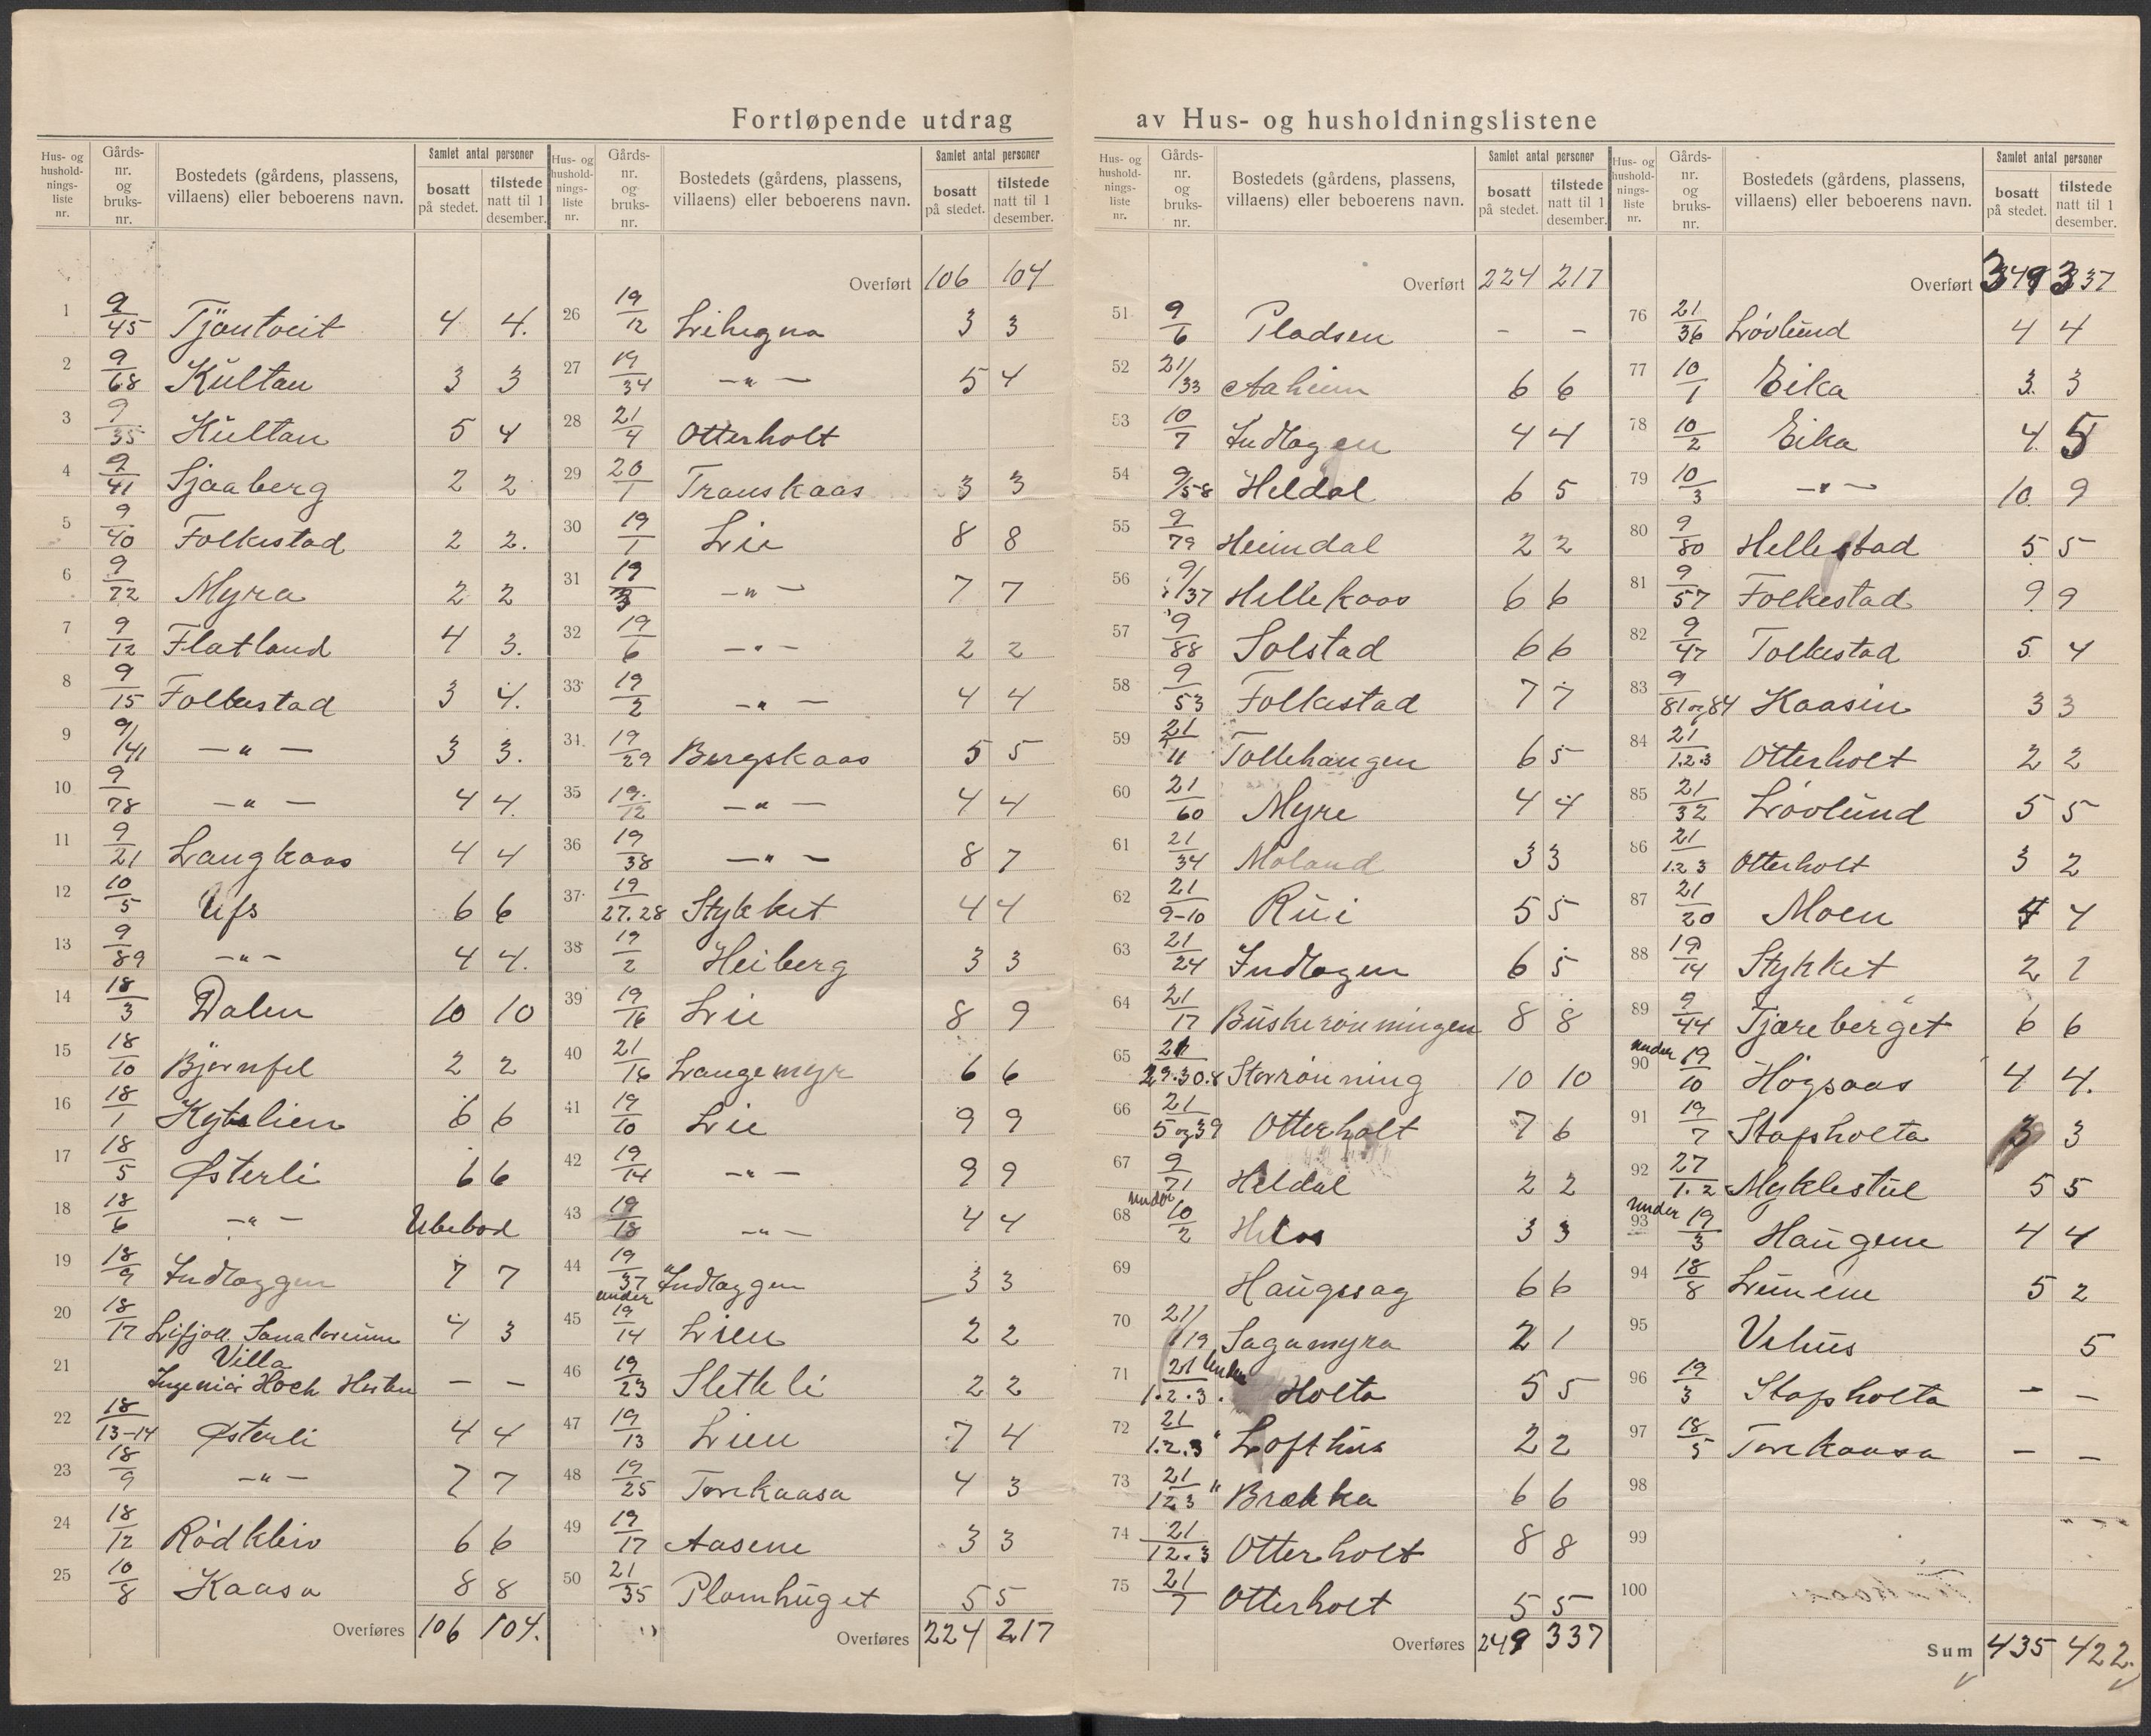 Fortløpende utdrag av Hus- og husholdningslistene
Hus- og hushold-nings-liste nr. | Gårds-nr. og bruks-nr. | Bostedets (gårdens, plassens, villaens) eller beboerens navn. | Samlet antal personer | bosatt på stedet. | tilstede natt til 1 desember.
1 9/45 Tjöntveit 4 4.
2 9/68 Kultan 3 3
3 9/35 Kultan 5 4
4 9/41 Sjaaberg 2 2
5 9/40 Folkestad 2 2.
6 9/72 Myra 2 2
7 9/12 Flatland 4 3.
8 9/15 Folkestad 3 4.
9 9/141 —"— 3 3.
10 9/78 —"— 4 4.
11 9/21 Langkaas 4 4
12 10/5 Ufs 6 6
13 9/89 —"— 4 4.
14 18/3 Dalen 10 10
15 18/10 Bjørnfel 2 2
16 18/1 Kytelien 6 6
17 18/5 Østerli 6 6
18 18/6 —"— Ubebod
19 18/9 Indlæggen 7 7
20 18/17 Lifjell Sanatorium 4 3
21 Villa
Ingeniør Hoch — —
22 18/13-14 Østerli 4 4
23 18/9 —"— 7 7
24 18/12 Rødkleiv 6 6
25 10/8 Kaasa 8 8
Overføres 106 104.
Hus- og hushold-nings-liste nr. | Gårds-nr. og bruks-nr. | Bostedets (gårdens, plassens, villaens) eller beboerens navn. | Samlet antal personer | bosatt på stedet. | tilstede natt til 1 desember.
Overført 106 104
26 19/12 Lihegna 3 3
27 19/34 —"— 5 4
28 21/4 Otterholt
29 20/1 Transkaas 3 3
30 19/1 Lie 8 8
31 19/3 —"— 7 7
32 19/6 —"— 2 2
33 19/2 —"— 4 4
34 19/29 Bergskaas 5 5
35 19/12 —"— 4 4
36 19/38 —"— 8 7
37 19/27.28 Stykket 4 4
38 19/2 Heiberg 3 3
39 19/16 Lie 8 9
40 21/16 Langemyr 6 6
41 19/10 Lie 9 9
42 19/14 —"— 9 9
43 19/18 —"— 4 4
44 19/37 Indlæggen 3 3
45 under 19/14 Lien 2 2
46 19/23 Sletteli 2 2
47 19/13 Lien 7 4
48 19/25 Torekaasa 4 3
49 19/17 Aasene 3 3
50 21/35 Plomhuget 5 5
Overføres 224 217
Hus- og hushold-nings-liste nr. | Gårds-nr. og bruks-nr. | Bostedets (gårdens, plassens, villaens) eller beboerens navn. | Samlet antal personer | bosatt på stedet. | tilstede natt til 1 desember.
Overført 224 217
51 9/6 Pladsen – –
52 21/33 Aaheim 6 6
53 10/7 Indlægen 4 4
54 9/58 Heldal 6 5
55 9/79 Heimdal 2 2
56 9/37 Hellekaas 6 6
57 9/88 Solstad 6 6
58 9/53 Folkestad 7 7
59 21/11 Tollehaugen 6 5
60 21/60 Myre 4 4
61 21/34 Moland 3 3
62 21/9-10 Rui 5 5
63 21/24 Indlægen 6 5
64 21/17 Buskerønningen 8 8
65 21/29.30.8 Storrønning 10 10
66 21/5 og 39 Otterholt 7 6
67 9/71 Heldal 2 2
68 under 10/2 3 3
69 Haugesag 6 6
70 21/119 Sagamyra 2 1
71 21/1.2.3. under Holta 5 5
72 21/1.2.3 " Lofthus 2 2
73 21/12.3 " Brækka 6 6
74 21/12.3 Otterholt 8 8
75 21/7 Otterholt 5 5
Overføres 249 337
Hus- og hushold-nings-liste nr. | Gårds-nr. og bruks-nr. | Bostedets (gårdens, plassens, villaens) eller beboerens navn. | Samlet antal personer | bosatt på stedet. | tilstede natt til 1 desember.
Overført 349 337
76 21/36 Løvlund 4 4
77 10/1 Eika 3. 3
78 10/2 Eika 4. 5
79 10/3 —"— 10. 9
80 9/80 Hellestad 5 5
81 9/57 Folkestad 9 9
82 9/47 Folkestad 5 4
83 9/81 og 84 Kaasin 3 3
84 21/1.2.3 Otterholt 2 2
85 21/32 Løvlund 5 5
86 21/1.2.3 Otterholt 3 2
87 21/20 Moen 4 4
88 19/14 Stykket 2 1
89 9/44 Tjæreberget 6 6
90 under 19/10 Høgsaas 4 4.
91 19/7 Stafsholta 3 3
92 27/1.2 Myklestul 5 5
93 under 19/3 Haugene 4 4
94 18/8 Lunene 5 2
95 Vehus 5
96 19/3 Stafsholta – –
97 18/5 Torekaasa – –
98
99
100
Sum 435 422.